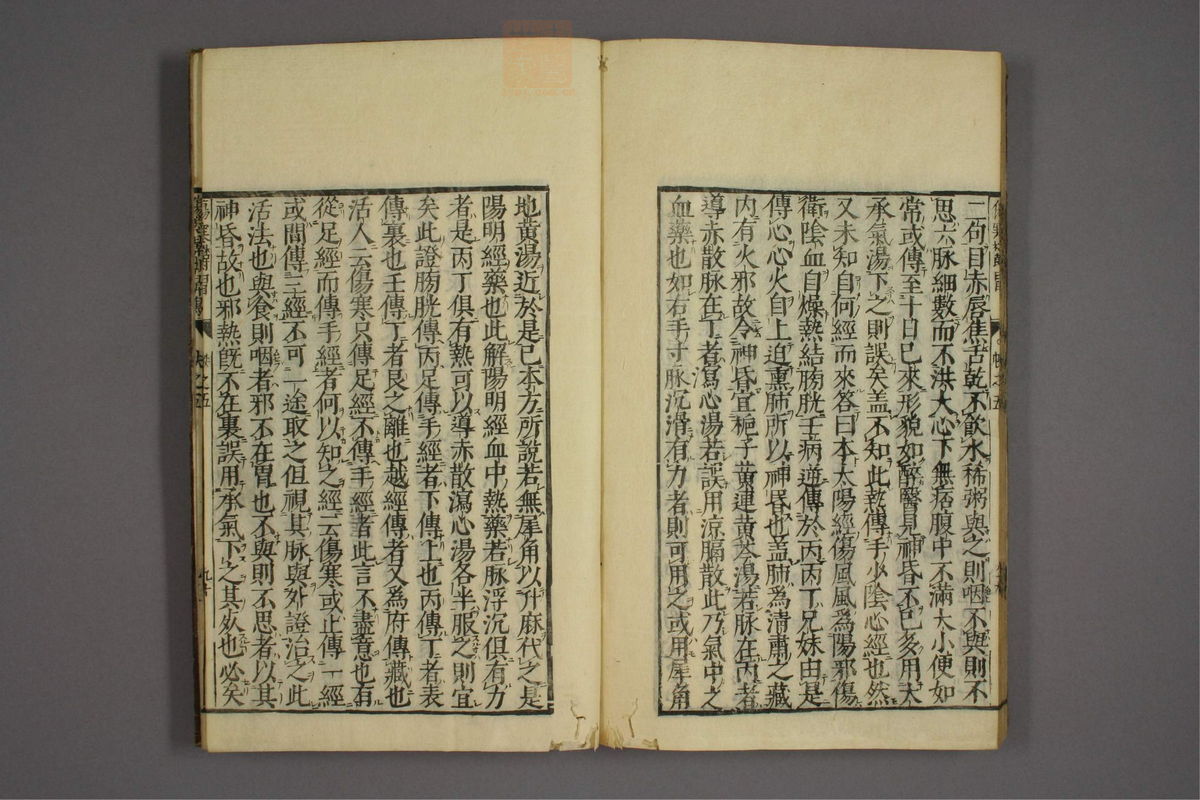 二句目赤唇焦舌乾不飲水稀粥與之則咽不與則不
思六脉細數而不洪大心下無痞腹中不滿大小便如
常或傳至十日已來形貌如醉醫見神昏不已多用大
承氣湯下之則誤矣盖不知此熱傳手少陰心經也然
又未知自何經而來答曰本太陽經傷風風爲陽邪傷
衛陰血自燥熱結膀胱壬病逆傳於丙丙丁兄妹由是
傳心心火自上迫熏肺所以神昏也盖肺爲清肅之藏
内有火邪故令神昏宜梔子黄連黄芩湯若脉在丙者
導赤散脉在丁者瀉心湯若誤用凉膈散此乃氣中之
血藥也如右手寸脉沉滑有力者則可用之或用犀角
地黄湯近於是已本方所說若無犀角以升麻代之是
陽明經藥也此解陽明經血中熱藥若脉浮沉俱有力
者是丙丁俱有熱可以導赤散瀉心湯各半服之則宜
矣此證膀胱傳丙足傳手經者下傳上也丙傳丁者表
傳裏也壬傳丁者艮之離也越經傳者又爲府傳藏也
活人云傷寒只傳足經不傳手經者此言不盡意也有
從足經而傳手經者何以知之經云傷寒或止傳一經
或間傳三經不可一途取之但視其脉與外證治之此
活法也與飡則咽者邪不在胃也不與則不思者以其
神昏故也邪熱旣不在裏誤用承氣下之其死也必矣